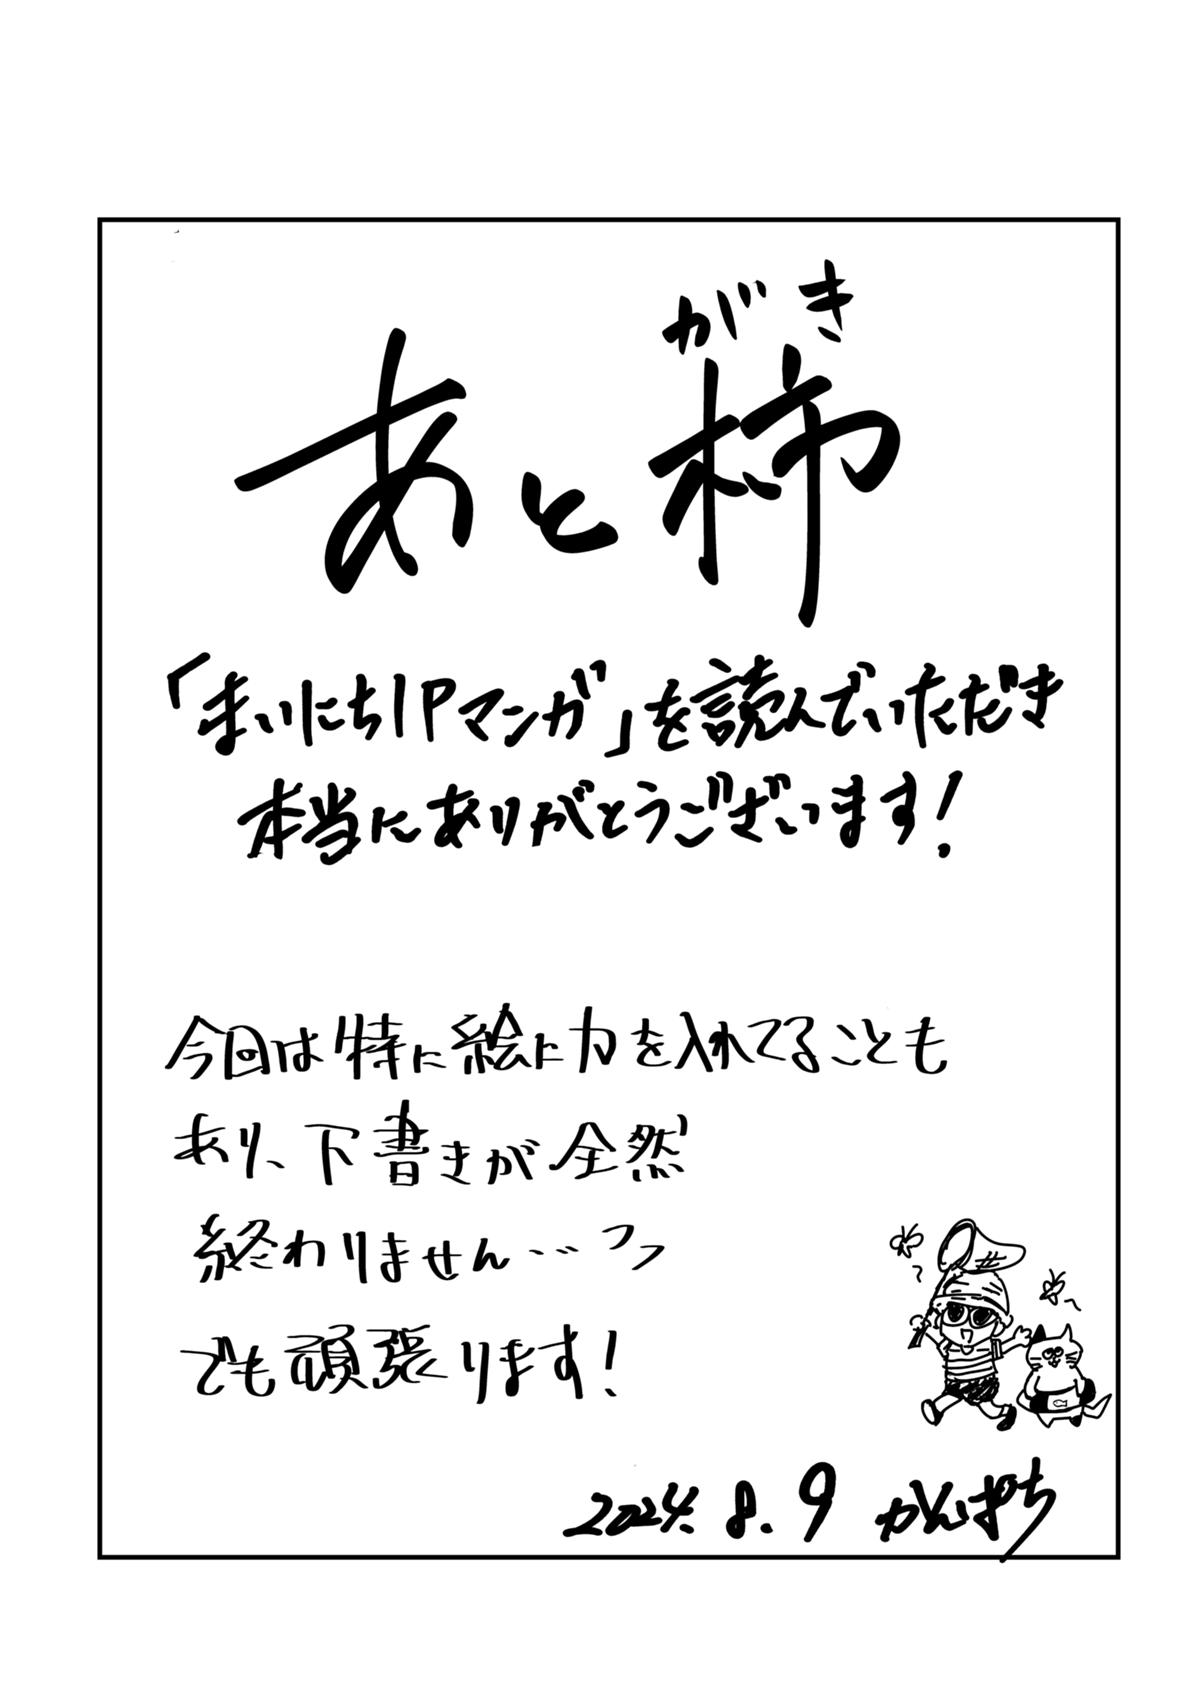 がき
あと柿
「まいにち1Pマンガ」を読んでいただき
本当にありがとうございます!
今回は特に絵に力を入れてることも
あり、下書きが全然
終わりません……っっ
でも頑張ります!
2024.8.9 がんぱち